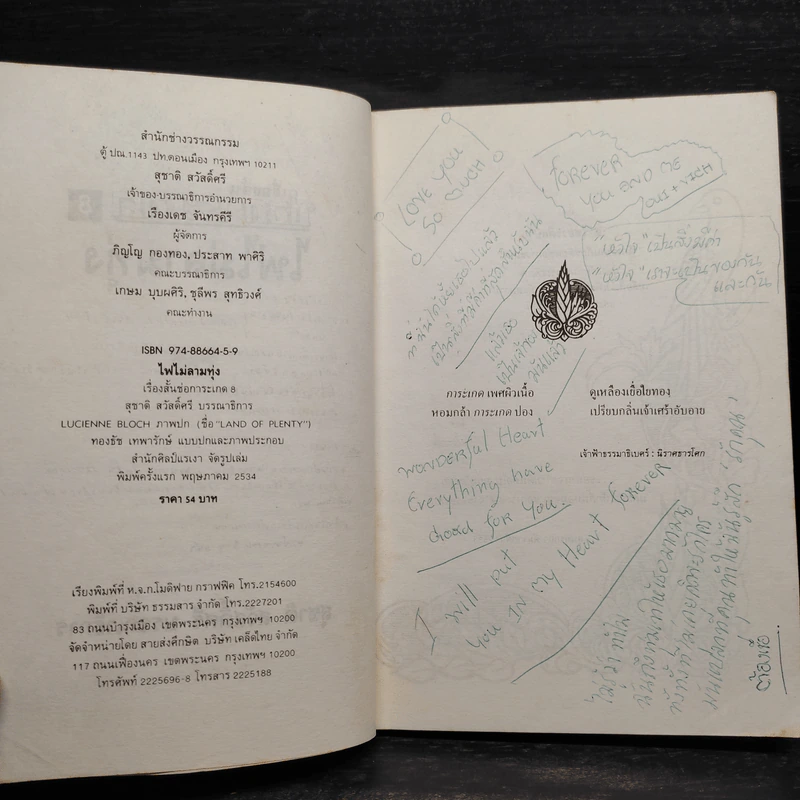 สำนักช่างวรรณกรรม
ตู้ ปณ.1143 ปท.ดอนเมือง กรุงเทพฯ 10211
สุชาติ สวัสดิ์ศรี
เจ้าของ-บรรณาธิการอำนวยการ
เรืองเดช จันทรคีรี
ผู้จัดการ
ภิญโญ กองทอง, ประสาท พาศิริ
คณะบรรณาธิการ
เกษม บุบผศิริ, ชุลีพร สุทธิวงศ์
คณะทำงาน
ISBN 974-88664-5-9
ไฟไม่ลามทุ่ง
เรื่องสั้นช่อการะเกด 8
สุชาติ สวัสดิ์ศรี บรรณาธิการ
LUCIENNE BLOCH ภาพปก (ชื่อ "LAND OF PLENTY")
ทองธัช เทพารักษ์ แบบปกและภาพประกอบ
สำนักศิลป์แรเงา จัดรูปเล่ม
พิมพ์ครั้งแรก พฤษภาคม 2534
ราคา 54 บาท
เรียงพิมพ์ที่ ห.จ.ก.โมดิฟาย กราฟฟิค โทร.2154600
พิมพ์ที่ บริษัท ธรรมสาร จำกัด โทร.2227201
83 ถนนบำรุงเมือง เขตพระนคร กรุงเทพฯ 10200
จัดจำหน่ายโดย สายส่งศึกษิต บริษัท เคล็ดไทย จำกัด
117 ถนนเฟื่องนคร เขตพระนคร กรุงเทพฯ 10200
โทรศัพท์ 2225696-8 โทรสาร 2225188
LOVE YOU
SO MUCH
FOREVER
YOU AND ME
"หัวใจ" เป็นสิ่งมีค่า
"หัวใจ" เราจะเป็นของกัน
และกัน
แล้วเธอ
เป็นเจ้าของ
มันแล้ว
การะเกด เพศผิวเนื้อ ดูเหลืองเยื่อใยทองฺ
หอมกล้า การะเกด ปอง เปรียบกลิ่นเจ้าเศร้าอับอาย
เจ้าฟ้าธรรมาธิเบศร์ : นิราศธารโศก
WONDERFUL Heart
Everything have
Good for You.
I will put
You IN My Heart forever
ไม่รู้ว่าทำไม